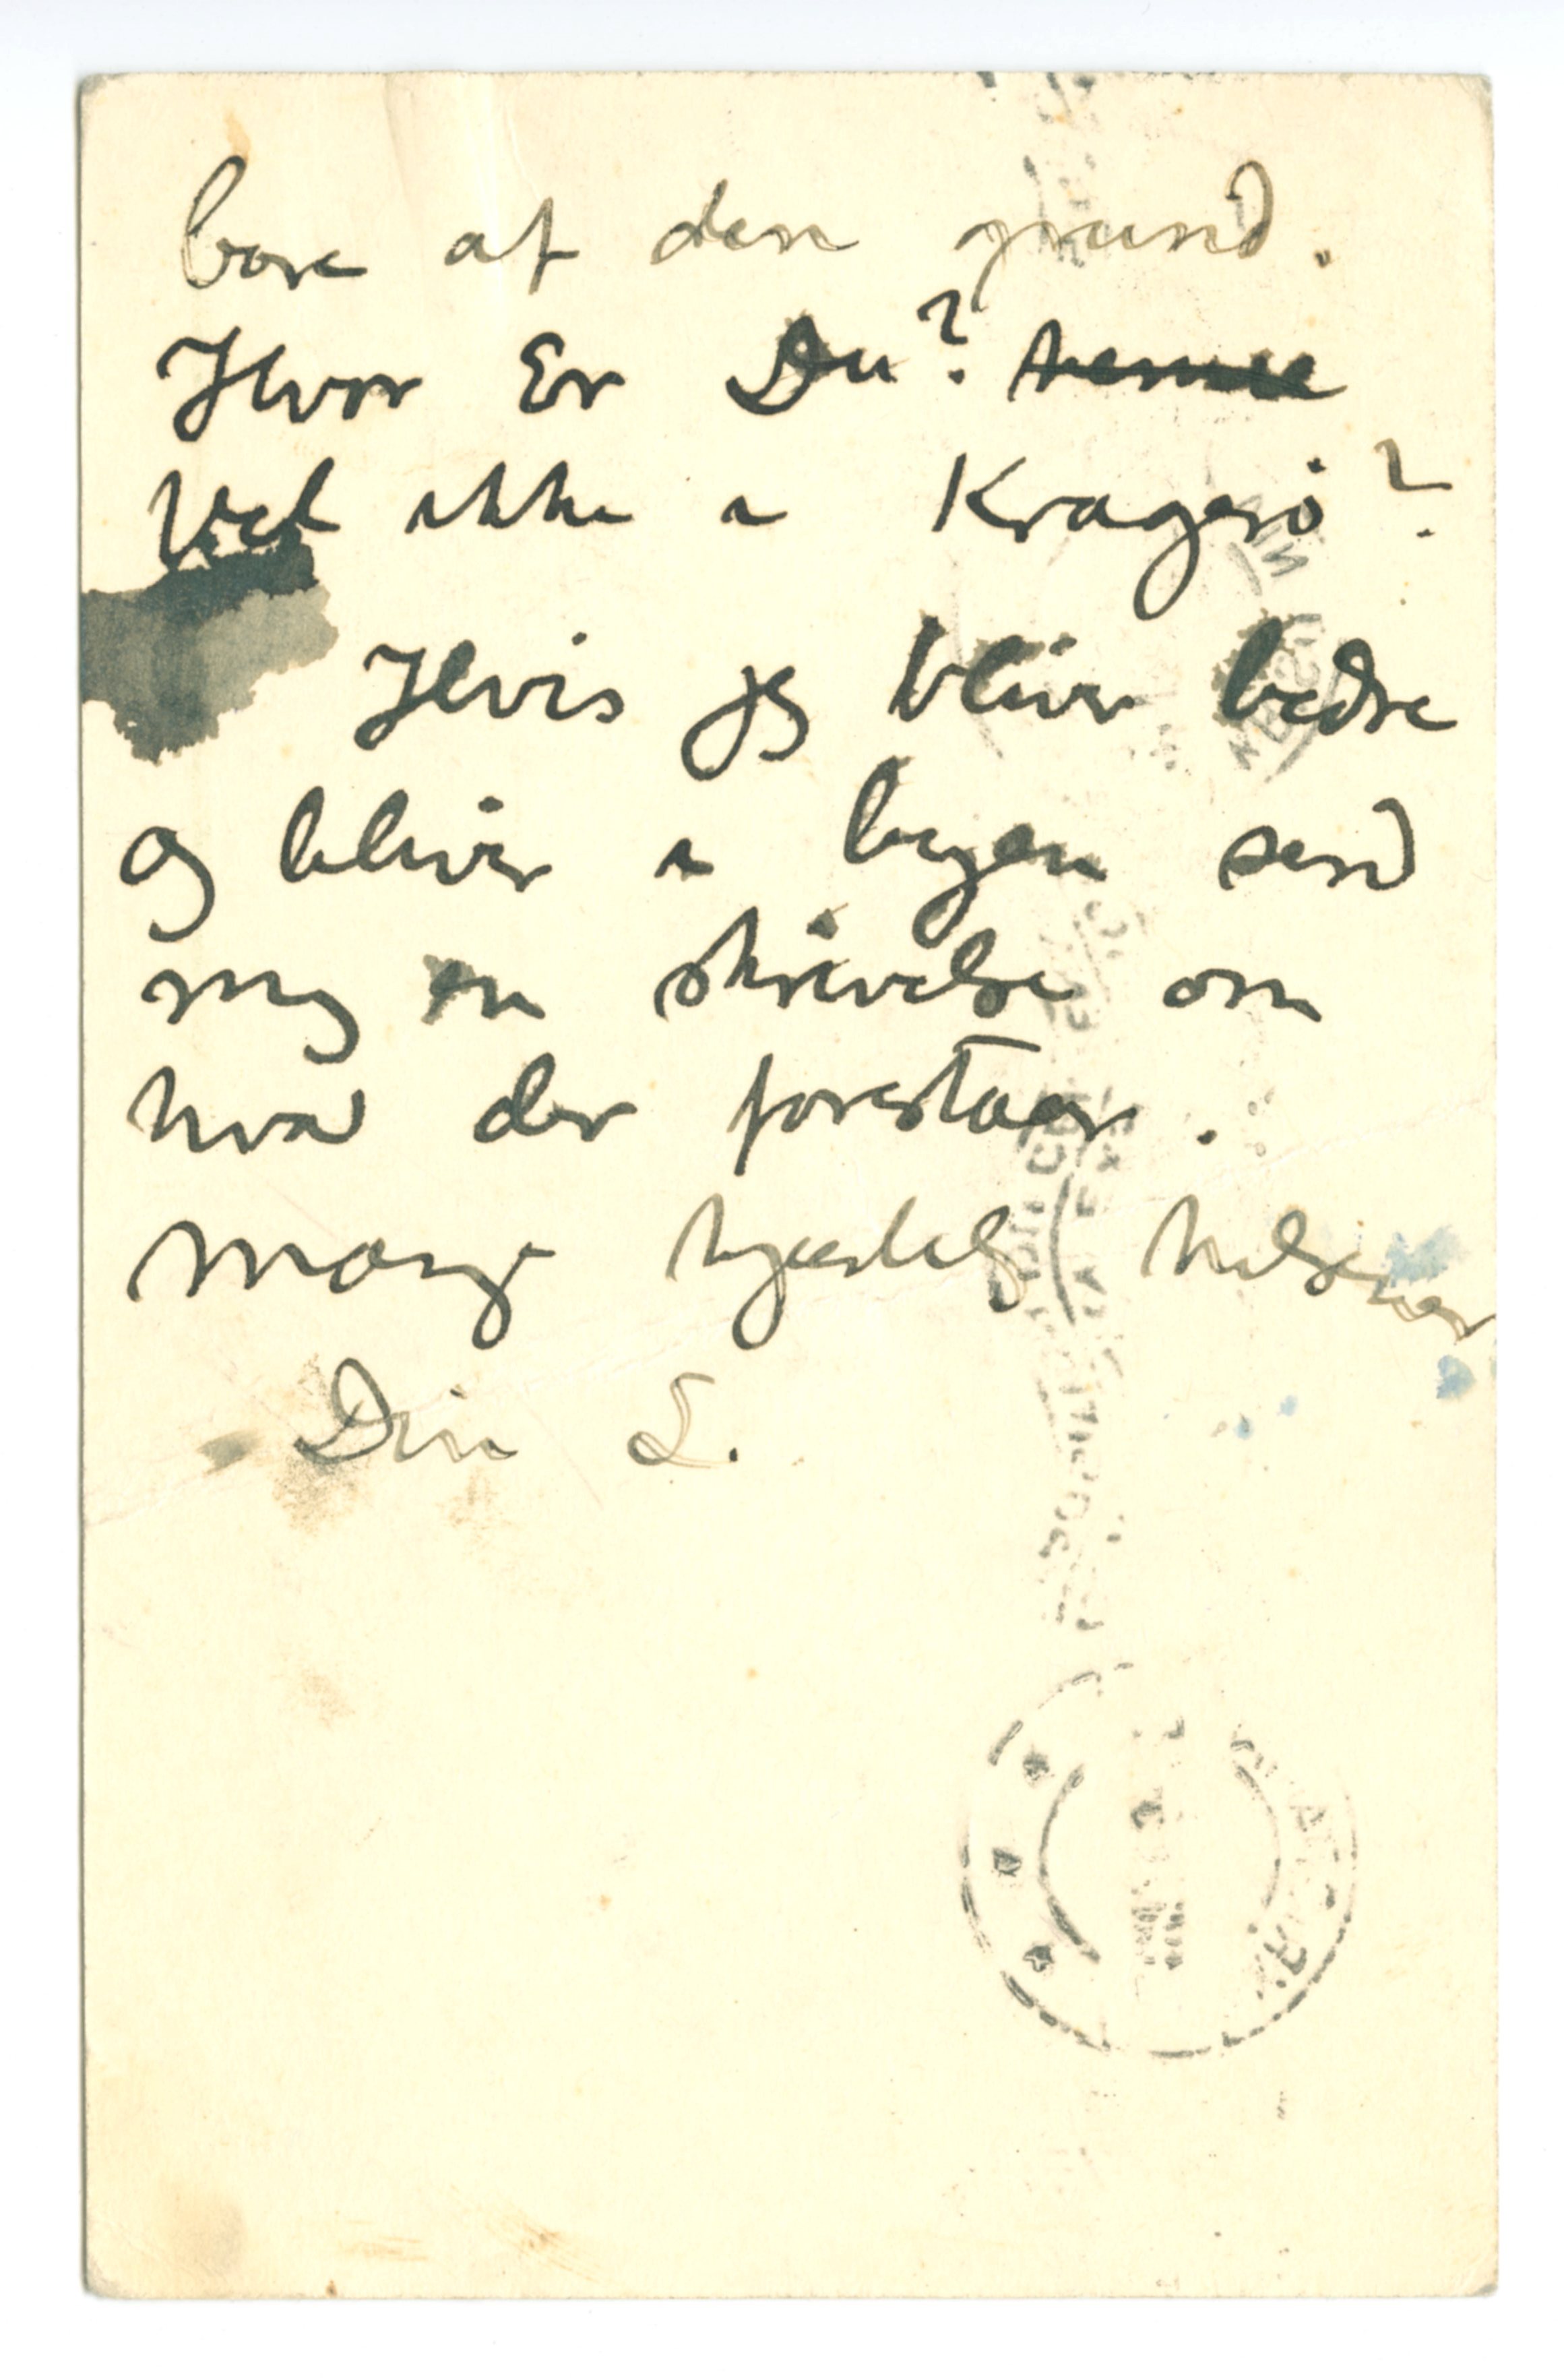 bare af den grund.
Hvor Er Du?
Vel ikke i Kragerø?
Hvis jeg bliver bedre
og bliver i byen send
mig en skrivelse om
hvad der forestaar.
Mange hjertelig hilsener
Din L.